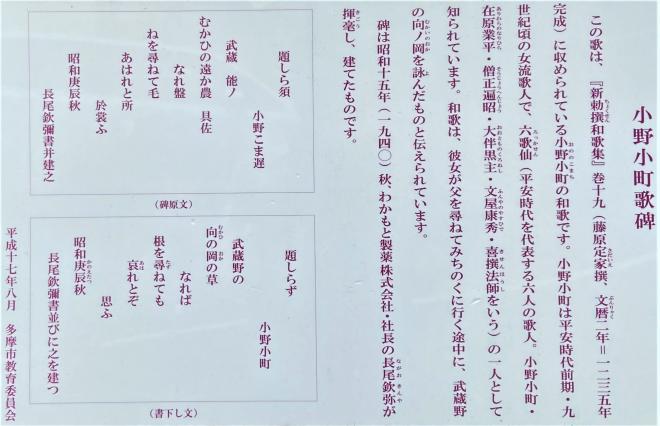 小野小町歌碑
この歌は、『新勅撰和歌集』巻十九（藤原定家撰、文暦二年＝一二三五年
完成）に収められている小野小町の和歌です。小野小町は平安時代前期・九
世紀頃の女流歌人で、六歌仙（平安時代を代表する六人の歌人。小野小町・
在原業平・僧正遍昭・大伴黒主・文屋康秀・喜撰法師をいう）の一人として
知られています。和歌は、彼女が父を尋ねてみちのくに行く途中に、武蔵野
の向ノ岡を詠んだものと伝えられています。
碑は昭和十五年（一九四〇）秋、わかもと製薬株式会社・社長の長尾欽弥が
揮毫し、建てたものです。
題しら須
小野こま遅
武蔵能ノ
むかひの遠か農具佐
なれ盤
ねを尋ねて毛
あはれと所
於裳ふ
昭和庚辰秋
長尾欽彌書并建之
（碑原文）
題しらず
小野小町
武蔵野の
向の岡の草
なれば
根を尋ねても
哀れとぞ
思ふ
昭和庚辰秋
長尾欽彌書並びに之を建つ
（書下し文）
平成十七年八月　多摩市教育委員会